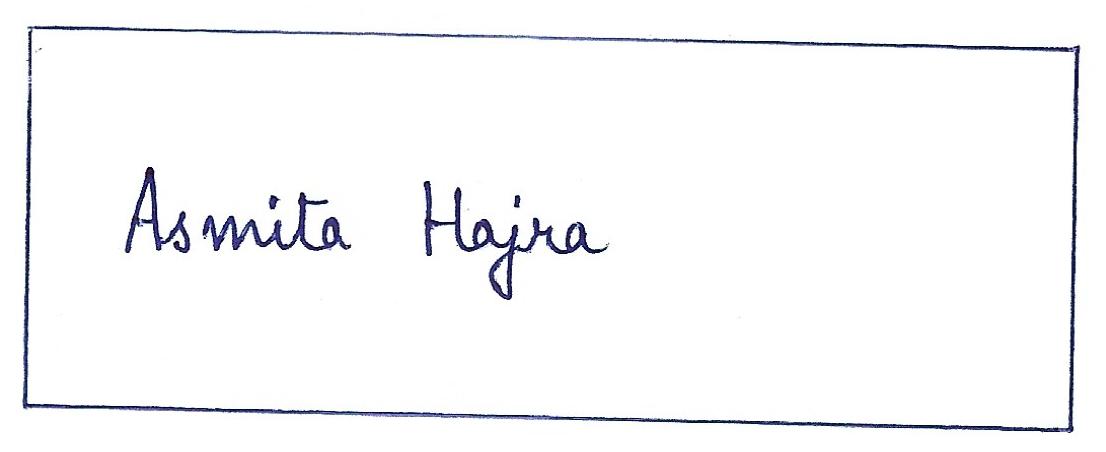 Asmita Hajra